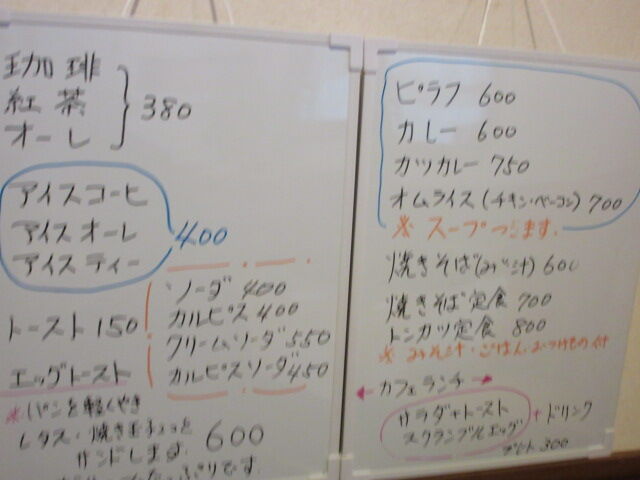 珈琲
紅茶
オーレ
380
アイスコーヒ
アイスオーレ
アイスティー
400
ソーダ 400
カルピス 400
クリームソーダ 550
カルピスソーダ 450
トースト 150
エッグトースト
※パンを軽くやき
レタス・焼き玉子を
サンドします。
600
ピラフ 600
カレー 600
カツカレー 750
オムライス(チキン・ベーコン) 700
※ スープつきます。
焼きそば(みそ汁) 600
焼きそば定食 700
トンカツ定食 800
※ みそ汁・ごはん・おつけもの付
カフェランチ
サラダ+トースト
スクランブルエッグ
+ドリンク
300